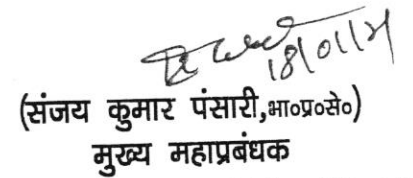 18/01/21
(संजय कुमार पंसारी,भा०प्र०से०)
मुख्य महाप्रबंधक